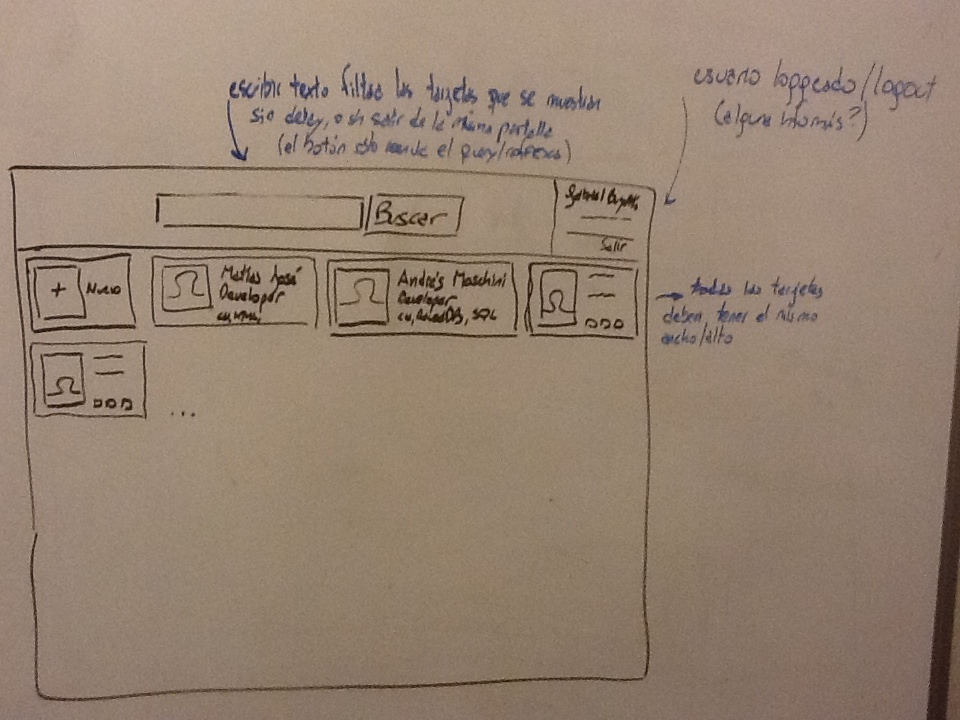 escribir texto filtra las tarjetas que se muestran
sin delay, o sin salir de la misma pantalla
(el botón sólo manda el query/refresca)
usuario loggeado/logout
(alguna info más?)
Buscar
Salir
+ Nuevo
Matías José
Developer
Andrés Moschini
Developer
C#, RavenDB, SQL
→ todas las tarjetas
deben tener el mismo
ancho/alto
...